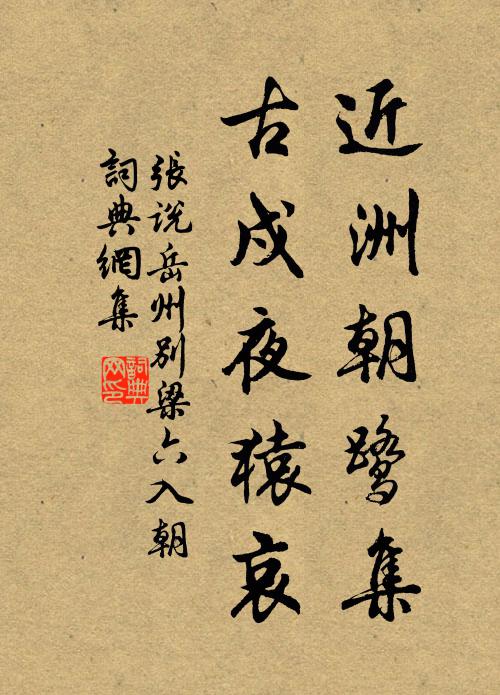 近洲朝鷺集
古戍夜猿哀
張说岳州别梁六入朝
詞典網集
詞典
网印